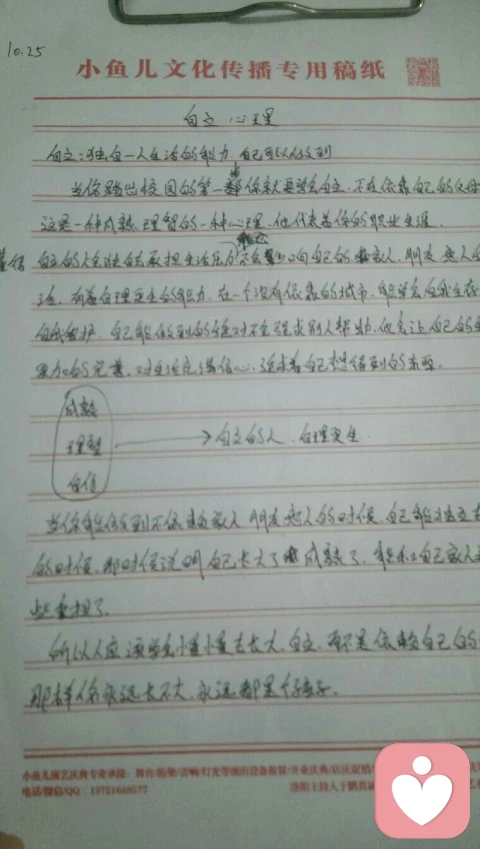 10.25
小鱼儿文化传播专用稿纸
自立心理
自立:独自一人生活的能力,自己可以做到
当你踏出校园的第一 你就要学会自立,不在依靠自己的父母
这是一种成熟、理智的一种心理,他代表着你的职业生涯
自立的人会独自去承担生活压力 不会 向自己的 家人、朋友、恋人
有着自理更生的能力,在一个没有依靠的城市,能学会自我生存
自我 护,自己能做到的绝对不会强求别人帮助,他会让自己的
更加的完善,对生活充满信心,追求着自己想得到的东西。
成熟
理智 自立的人、自理更生
自信
当你能做到不依赖家人 朋友 恋人的时候,自己能独立
的时候,那时候说明自己长大了 成熟了,能和自己家人
些重担了.
所以人应该学会慢慢去长大,自立,而不是依赖自己的
那样你永远长不大,永远都是个孩子.
小鱼儿演艺庆典专业承接:舞台/桁架/音响/灯光等演出设备租赁/开业庆典/店庆促销/
电话/微信/QQ:13721648577 洛阳主持人于鹏真诚